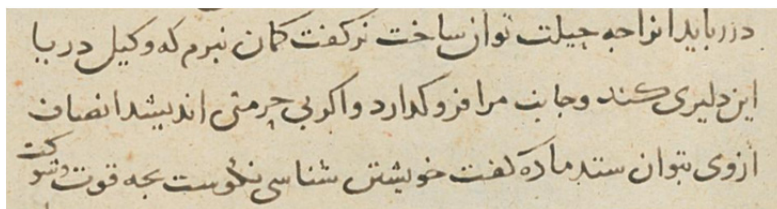 در رباید انرا چه حیلت توان ساخت نر کفت کمان نبرم که وکیل دریا
این دلیری کند و جانب مرا فرو کدارد و اکر بی حرمتی اندیشد انصاف
ازوی بتوان ستد ماده کفت خویشتن شناسی نکوست بچه قوت وشوکت